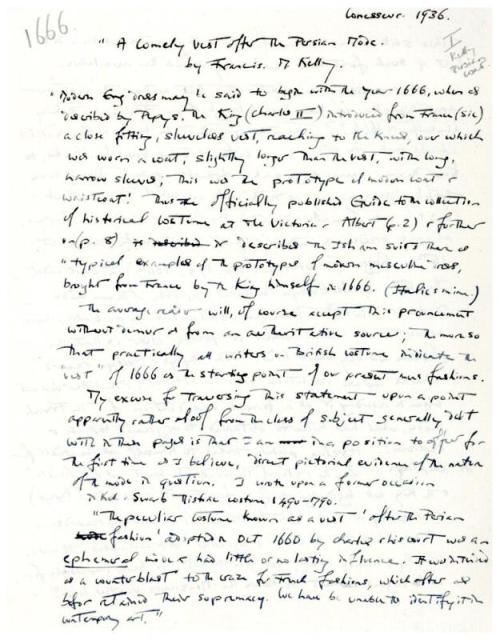 Connoisseur. 1936.
1666.
I
Kelly
Persian
Vest.
" A Comely Vest after the Persian Mode.
by Francis. M Kelly.
' Modern Eng dress may be said to begin with the year 1666, when as
described by Pepys, the King (Charles II) introduced from France (sic)
a close fitting, sleeveless vest, reaching to the knees, over which
was worn a coat, slightly longer than the vest, with long,
narrow sleeves; this was the prototype of modern coat &
waistcoat! Thus the officially published Guide to the collection
of historical costume at the Victoria & Albert (p.2) & further
on (p. 8) it describes the Isham suits there as
"typical examples of the prototypes of modern masculine dress,
brought from France by the King himself in 1666. (Italics mine.)
The average reader will, of course accept this pronouncement
without demur as from an authoritative source; the more so
that practically all writers on British costume indicate the
vest of 1666 as the starting point of our present mens fashions.
My excuse for traversing this statement upon a point
apparently rather aloof from the class of subject generally dealt
with in these pages is that I am in a position to offer for
the first time as I believe, direct pictorial evidence of the nature
of the mode in question. I wrote upon a former occasion
in Kel. Swarb Historic costume 1490-1790.
"The peculiar costume known as a vest ' after the Persian
fashion' adopted in Oct 1660 by Charles & his court was an
ephemeral mode & had little or no lasting influence. It was intended
as a counterblast to the craze for French fashions, which after as
before retained their supremacy. We have be unable to identify it in
contemporary art."